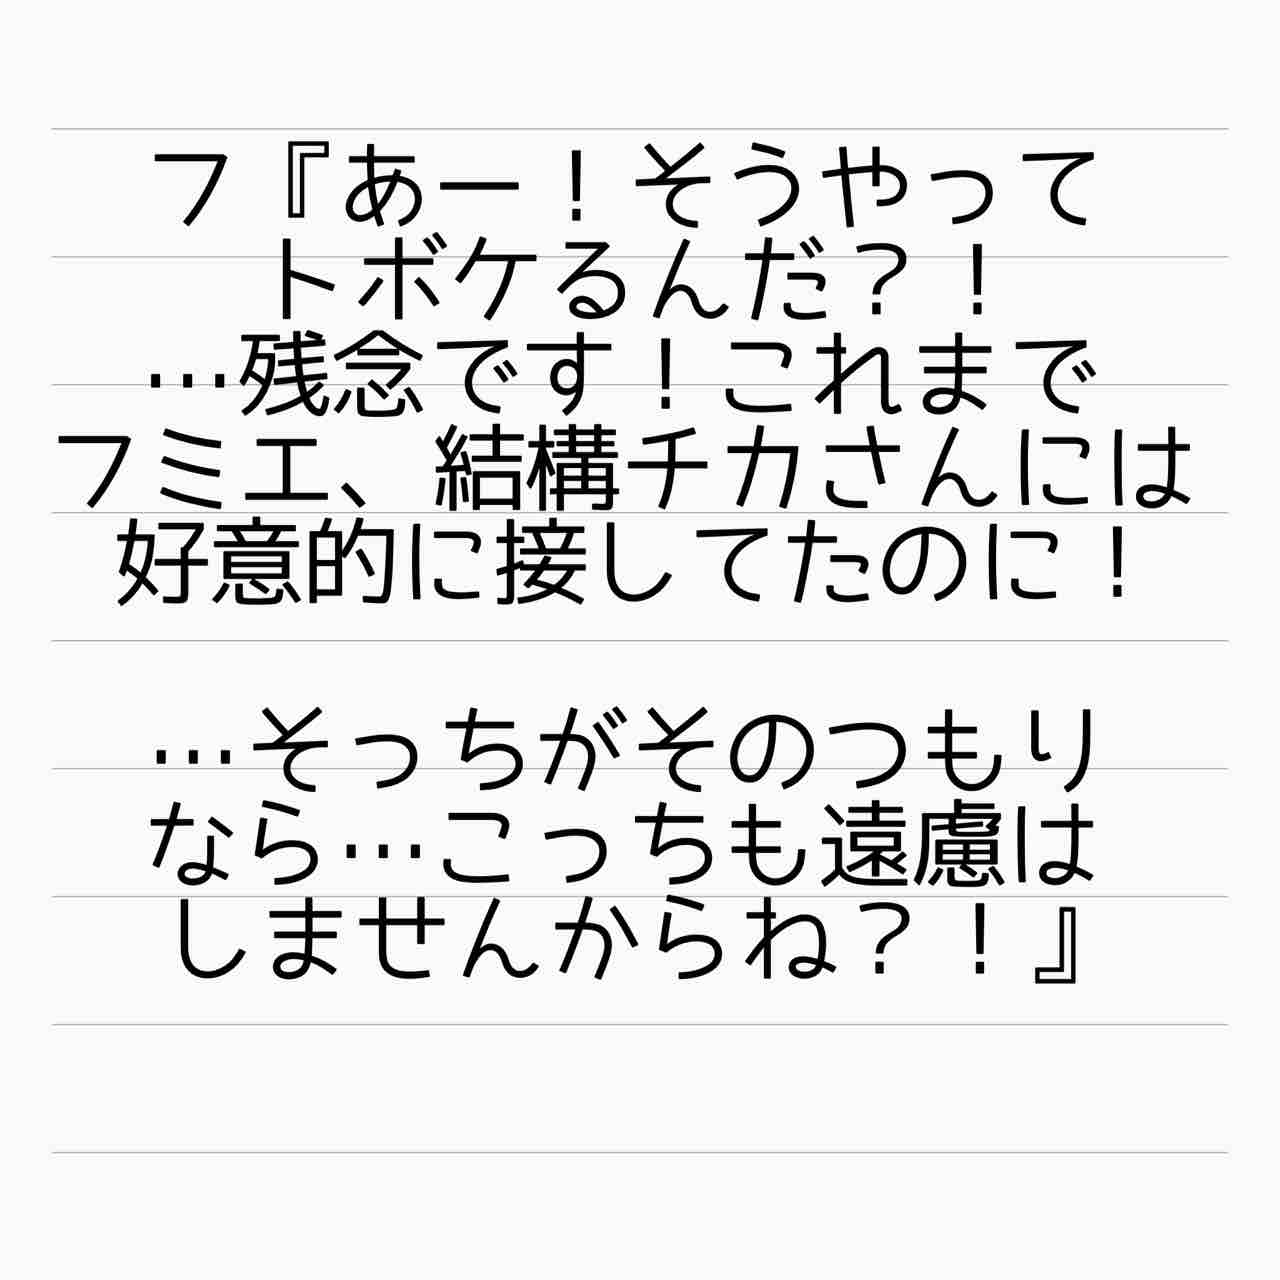 フ『あー！そうやって
トボケるんだ？！
…残念です！これまで
フミエ、結構チカさんには
好意的に接してたのに！
…そっちがそのつもり
なら…こっちも遠慮は
しませんからね？！』